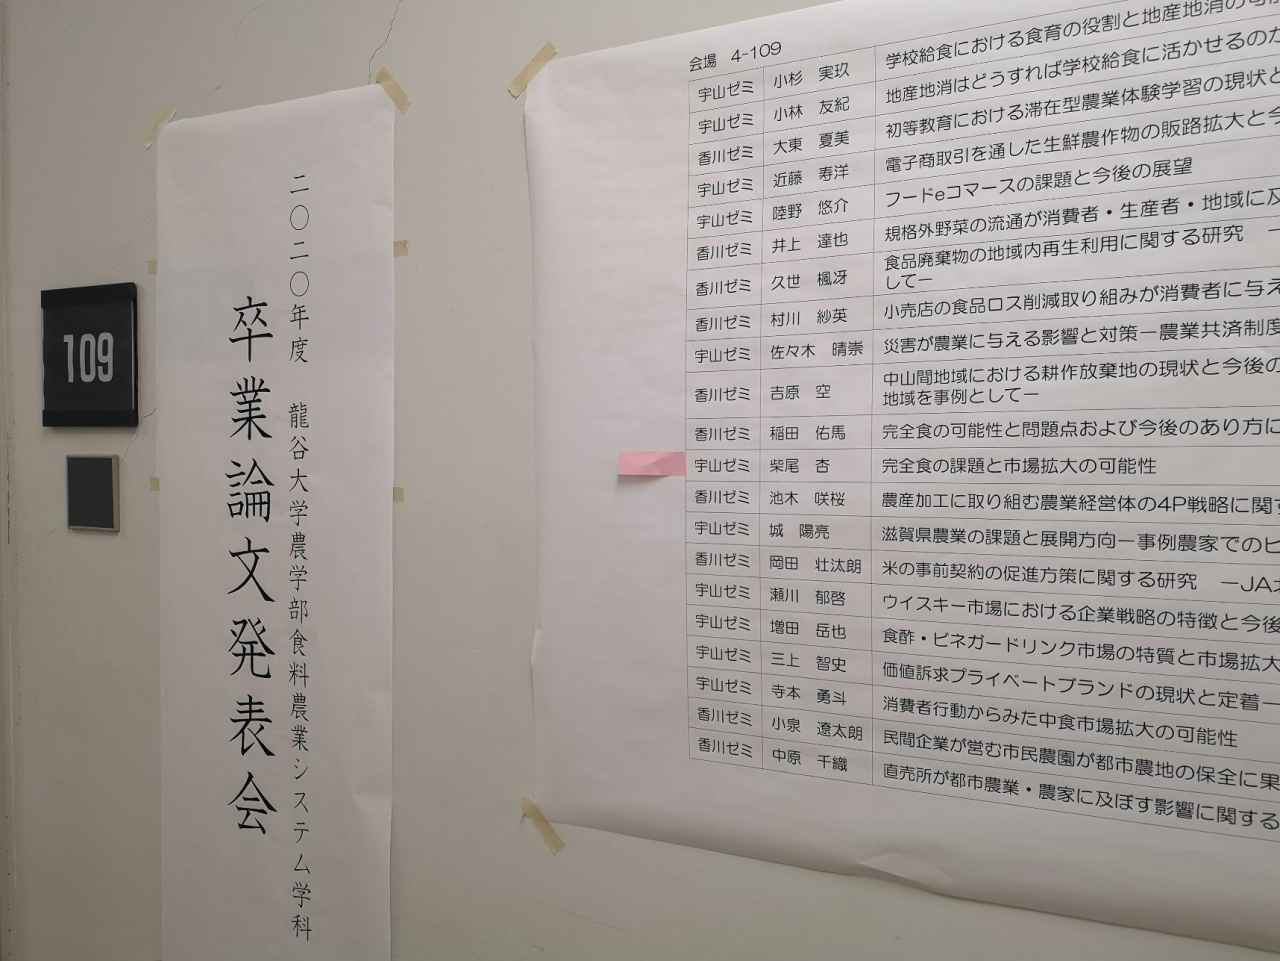 109
二〇二〇年度 龍谷大学農学部食料農業システム学科
卒業論文発表会
会場 4-109
宇山ゼミ 小杉 実玖 学校給食における食育の役割と地産地消の可能
宇山ゼミ 小林 友紀 地産地消はどうすれば学校給食に活かせるのか
香川ゼミ 大東 夏美 初等教育における滞在型農業体験学習の現状と
宇山ゼミ 近藤 寿洋 電子商取引を通した生鮮農作物の販路拡大と今
宇山ゼミ 陸野 悠介 フードeコマースの課題と今後の展望
香川ゼミ 井上 達也 規格外野菜の流通が消費者・生産者・地域に及
香川ゼミ 久世 楓冴 食品廃棄物の地域内再生利用に関する研究 ー
してー
香川ゼミ 村川 紗英 小売店の食品ロス削減取り組みが消費者に与え
宇山ゼミ 佐々木 晴崇 災害が農業に与える影響と対策ー農業共済制度
香川ゼミ 吉原 空 中山間地域における耕作放棄地の現状と今後の
地域を事例としてー
香川ゼミ 稲田 佑馬 完全食の可能性と問題点および今後のあり方に
宇山ゼミ 柴尾 杏 完全食の課題と市場拡大の可能性
香川ゼミ 池木 咲桜 農産加工に取り組む農業経営体の4P戦略に関す
宇山ゼミ 城 陽亮 滋賀県農業の課題と展開方向ー事例農家でのヒ
香川ゼミ 岡田 壮汰朗 米の事前契約の促進方策に関する研究 ーJA
宇山ゼミ 瀬川 郁啓 ウイスキー市場における企業戦略の特徴と今後
宇山ゼミ 増田 岳也 食酢・ビネガードリンク市場の特質と市場拡大
宇山ゼミ 三上 智史 価値訴求プライベートブランドの現状と定着ー
宇山ゼミ 寺本 勇斗 消費者行動からみた中食市場拡大の可能性
香川ゼミ 小泉 遼太朗 民間企業が営む市民農園が都市農地の保全に果
香川ゼミ 中原 千織 直売所が都市農業・農家に及ぼす影響に関する